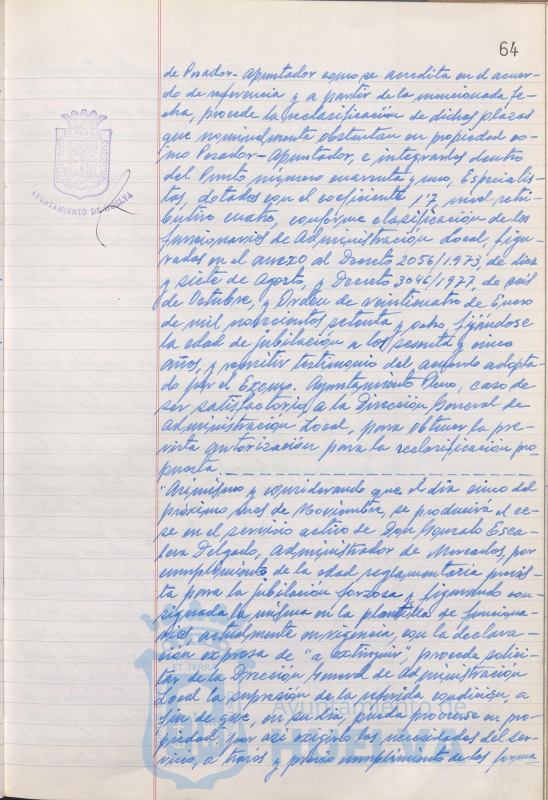 64
de Pesador-Apuntador como se acredita en el acuer-
do de referencia y a partir de la mencionada fe-
cha, procede la reclasificación de dichas plazas
que nominalmente obstentan en propiedad co-
mo Pesador-Apuntador, e integrarlos dentro
del Punto número cuarenta y uno, Especialis-
tas, dotados con el coeficiente 1'7, nivel retri-
butivo cuatro, conforme clasificación de los
funcionarios de Administración Local, figu-
rados en el anexo al Decreto 2056/1973, de diez
y siete de Agosto, y Decreto 3046/1977, de seis
de Octubre, y Orden de veinticuatro de Enero
de mil novecientos setenta y ocho, fijándose
la edad de jubilación a los sesenta y cinco
años, y remitir testimonio del acuerdo adopta-
do por el Excmo. Ayuntamiento Pleno, caso de
ser satisfactorio, a la Dirección General de
Administración Local, para obtener la pre-
vista autorización para la reclasificación pro-
puesta.
"Asimismo y considerando que el día cinco del
próximo mes de Noviembre, se producirá el ce-
se en el servicio activo de Don Gonzalo Esca-
lera Delgado, Administrador de Mercados, por
cumplimiento de la edad reglamentaria previs-
ta para la jubilación forzosa y figurando con-
signada la misma en la plantilla de funciona-
rios, actualmente en vigencia, con la declara-
ción expresa de "a extinguir", procede solici-
tar de la Dirección General de Administración
Local la supresión de la referida condición, a
fin de que, en su día, pueda proveerse en pro-
piedad, por así exigirlo las necesidades del ser-
vicio, a través y previo cumplimiento de las forma
AYUNTAMIENTO DE HUELVA
ET TERRÆ
Ayuntamiento de
HUELVA